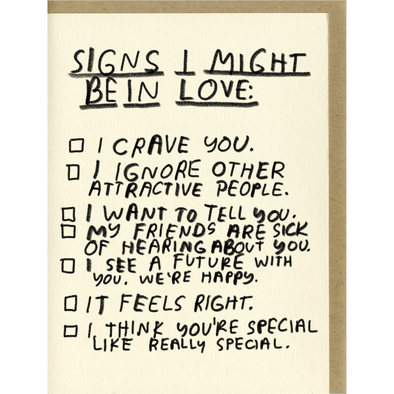 SIGNS I MIGHT
BE IN LOVE:
I CRAVE YOU.
I IGNORE OTHER
ATTRACTIVE PEOPLE.
I WANT TO TELL YOU.
MY FRIENDS ARE SICK
OF HEARING ABOUT YOU.
I SEE A FUTURE WITH
YOU. WE'RE HAPPY.
IT FEELS RIGHT.
I THINK YOU'RE SPECIAL
LIKE REALLY SPECIAL.